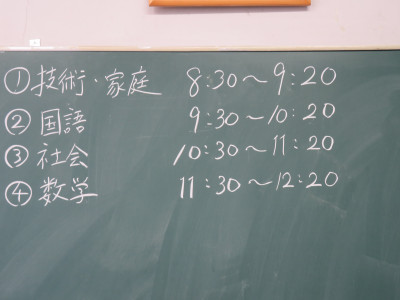 ① 技術・家庭 8:30～9:20
② 国語 9:30～10:20
③ 社会 10:30～11:20
④ 数学 11:30～12:20